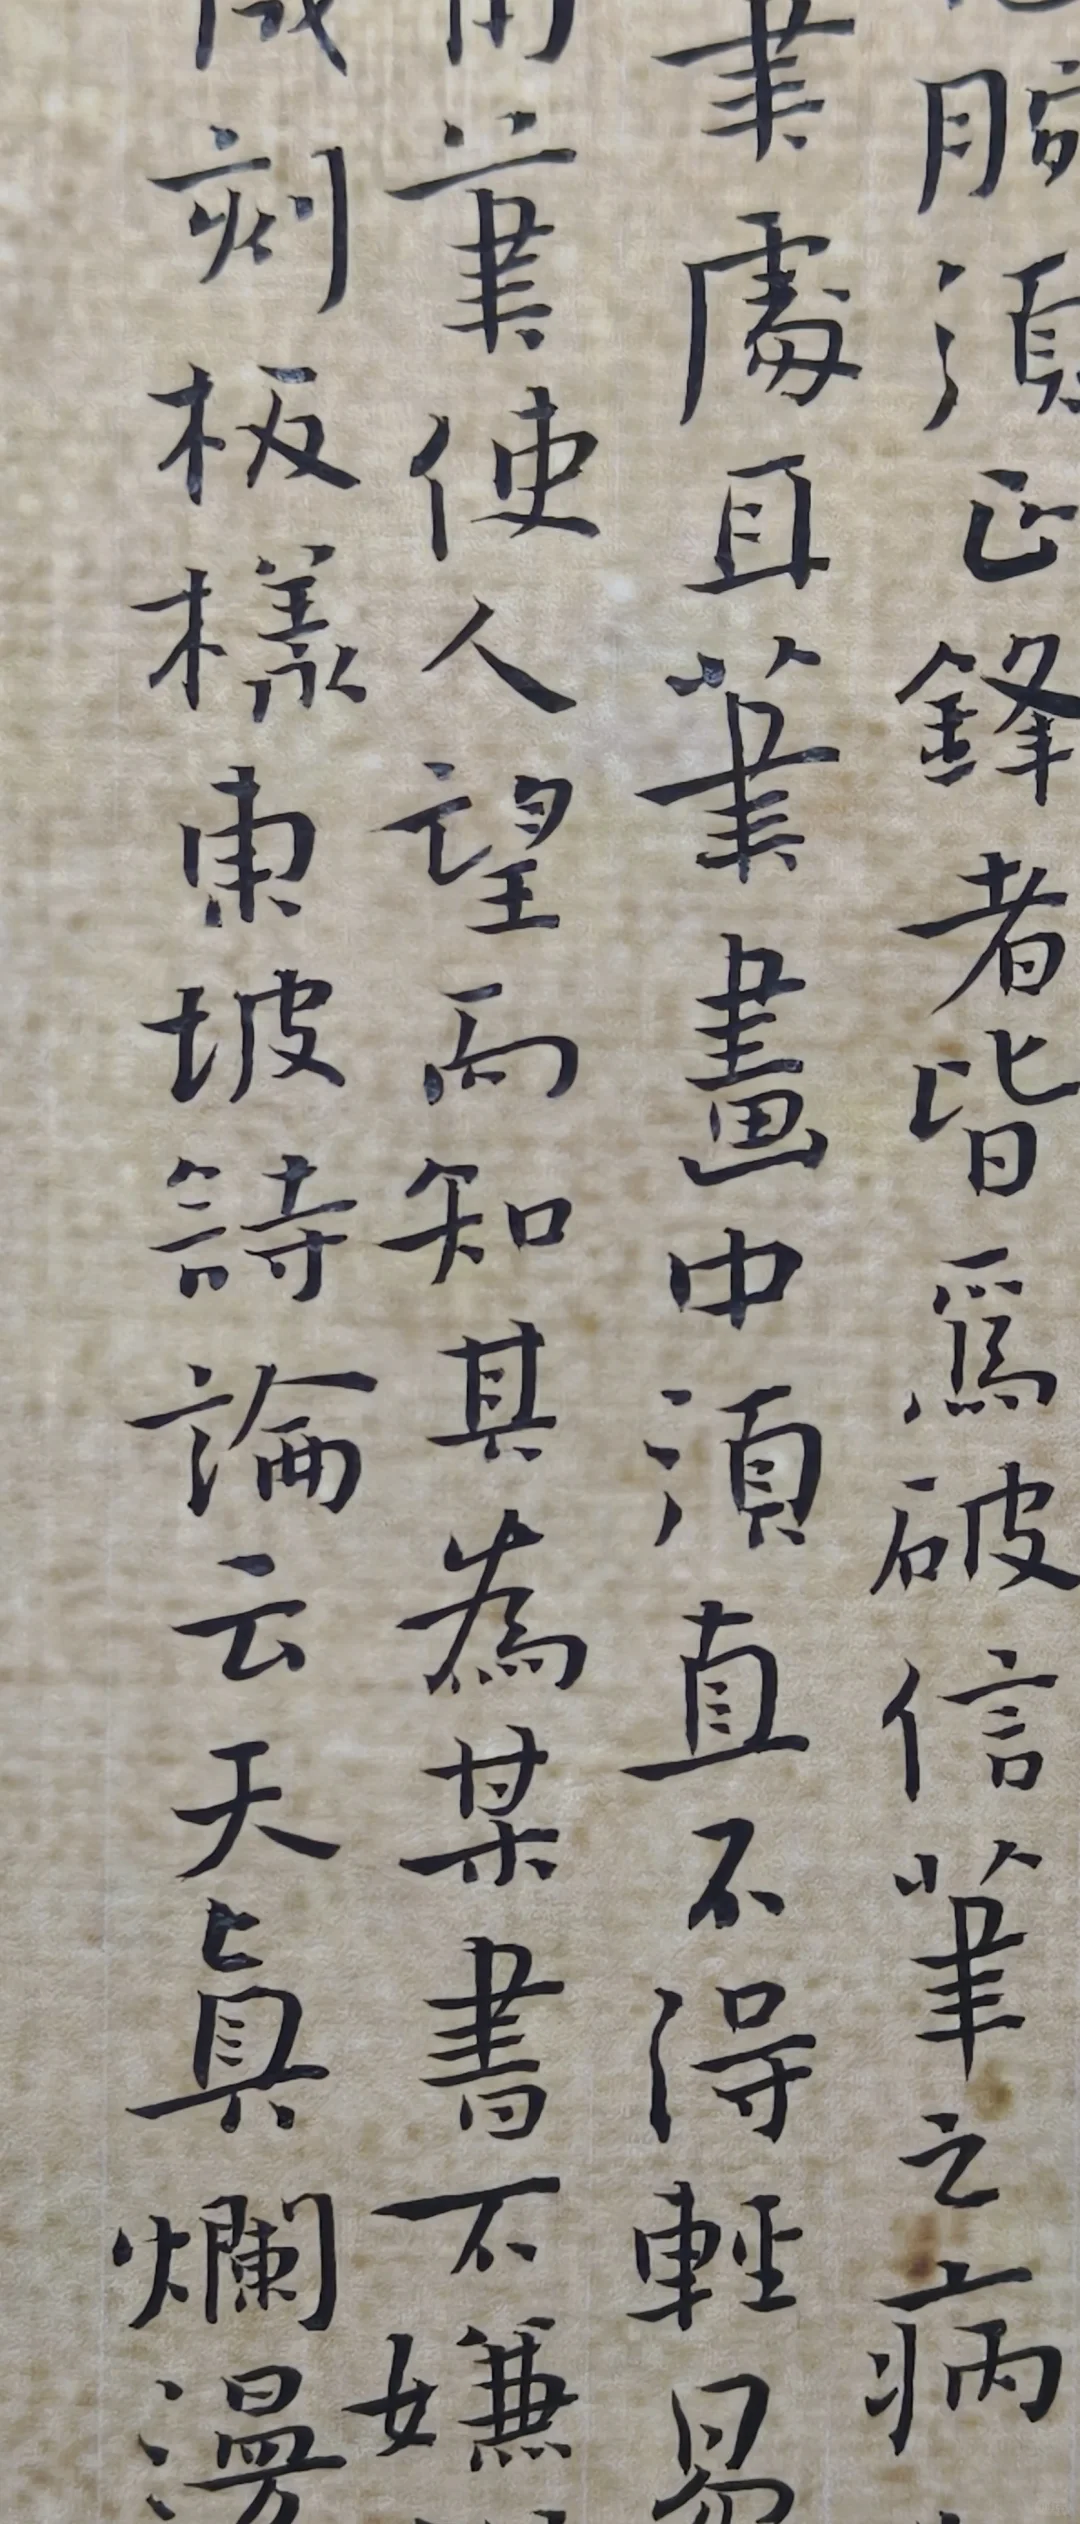 腕須正鋒者皆爲破信筆之病
筆處耳筆畫中須直不得輕易
用筆使人望而知其為某書不嫌
成刻板樣東坡詩論云天眞爛漫